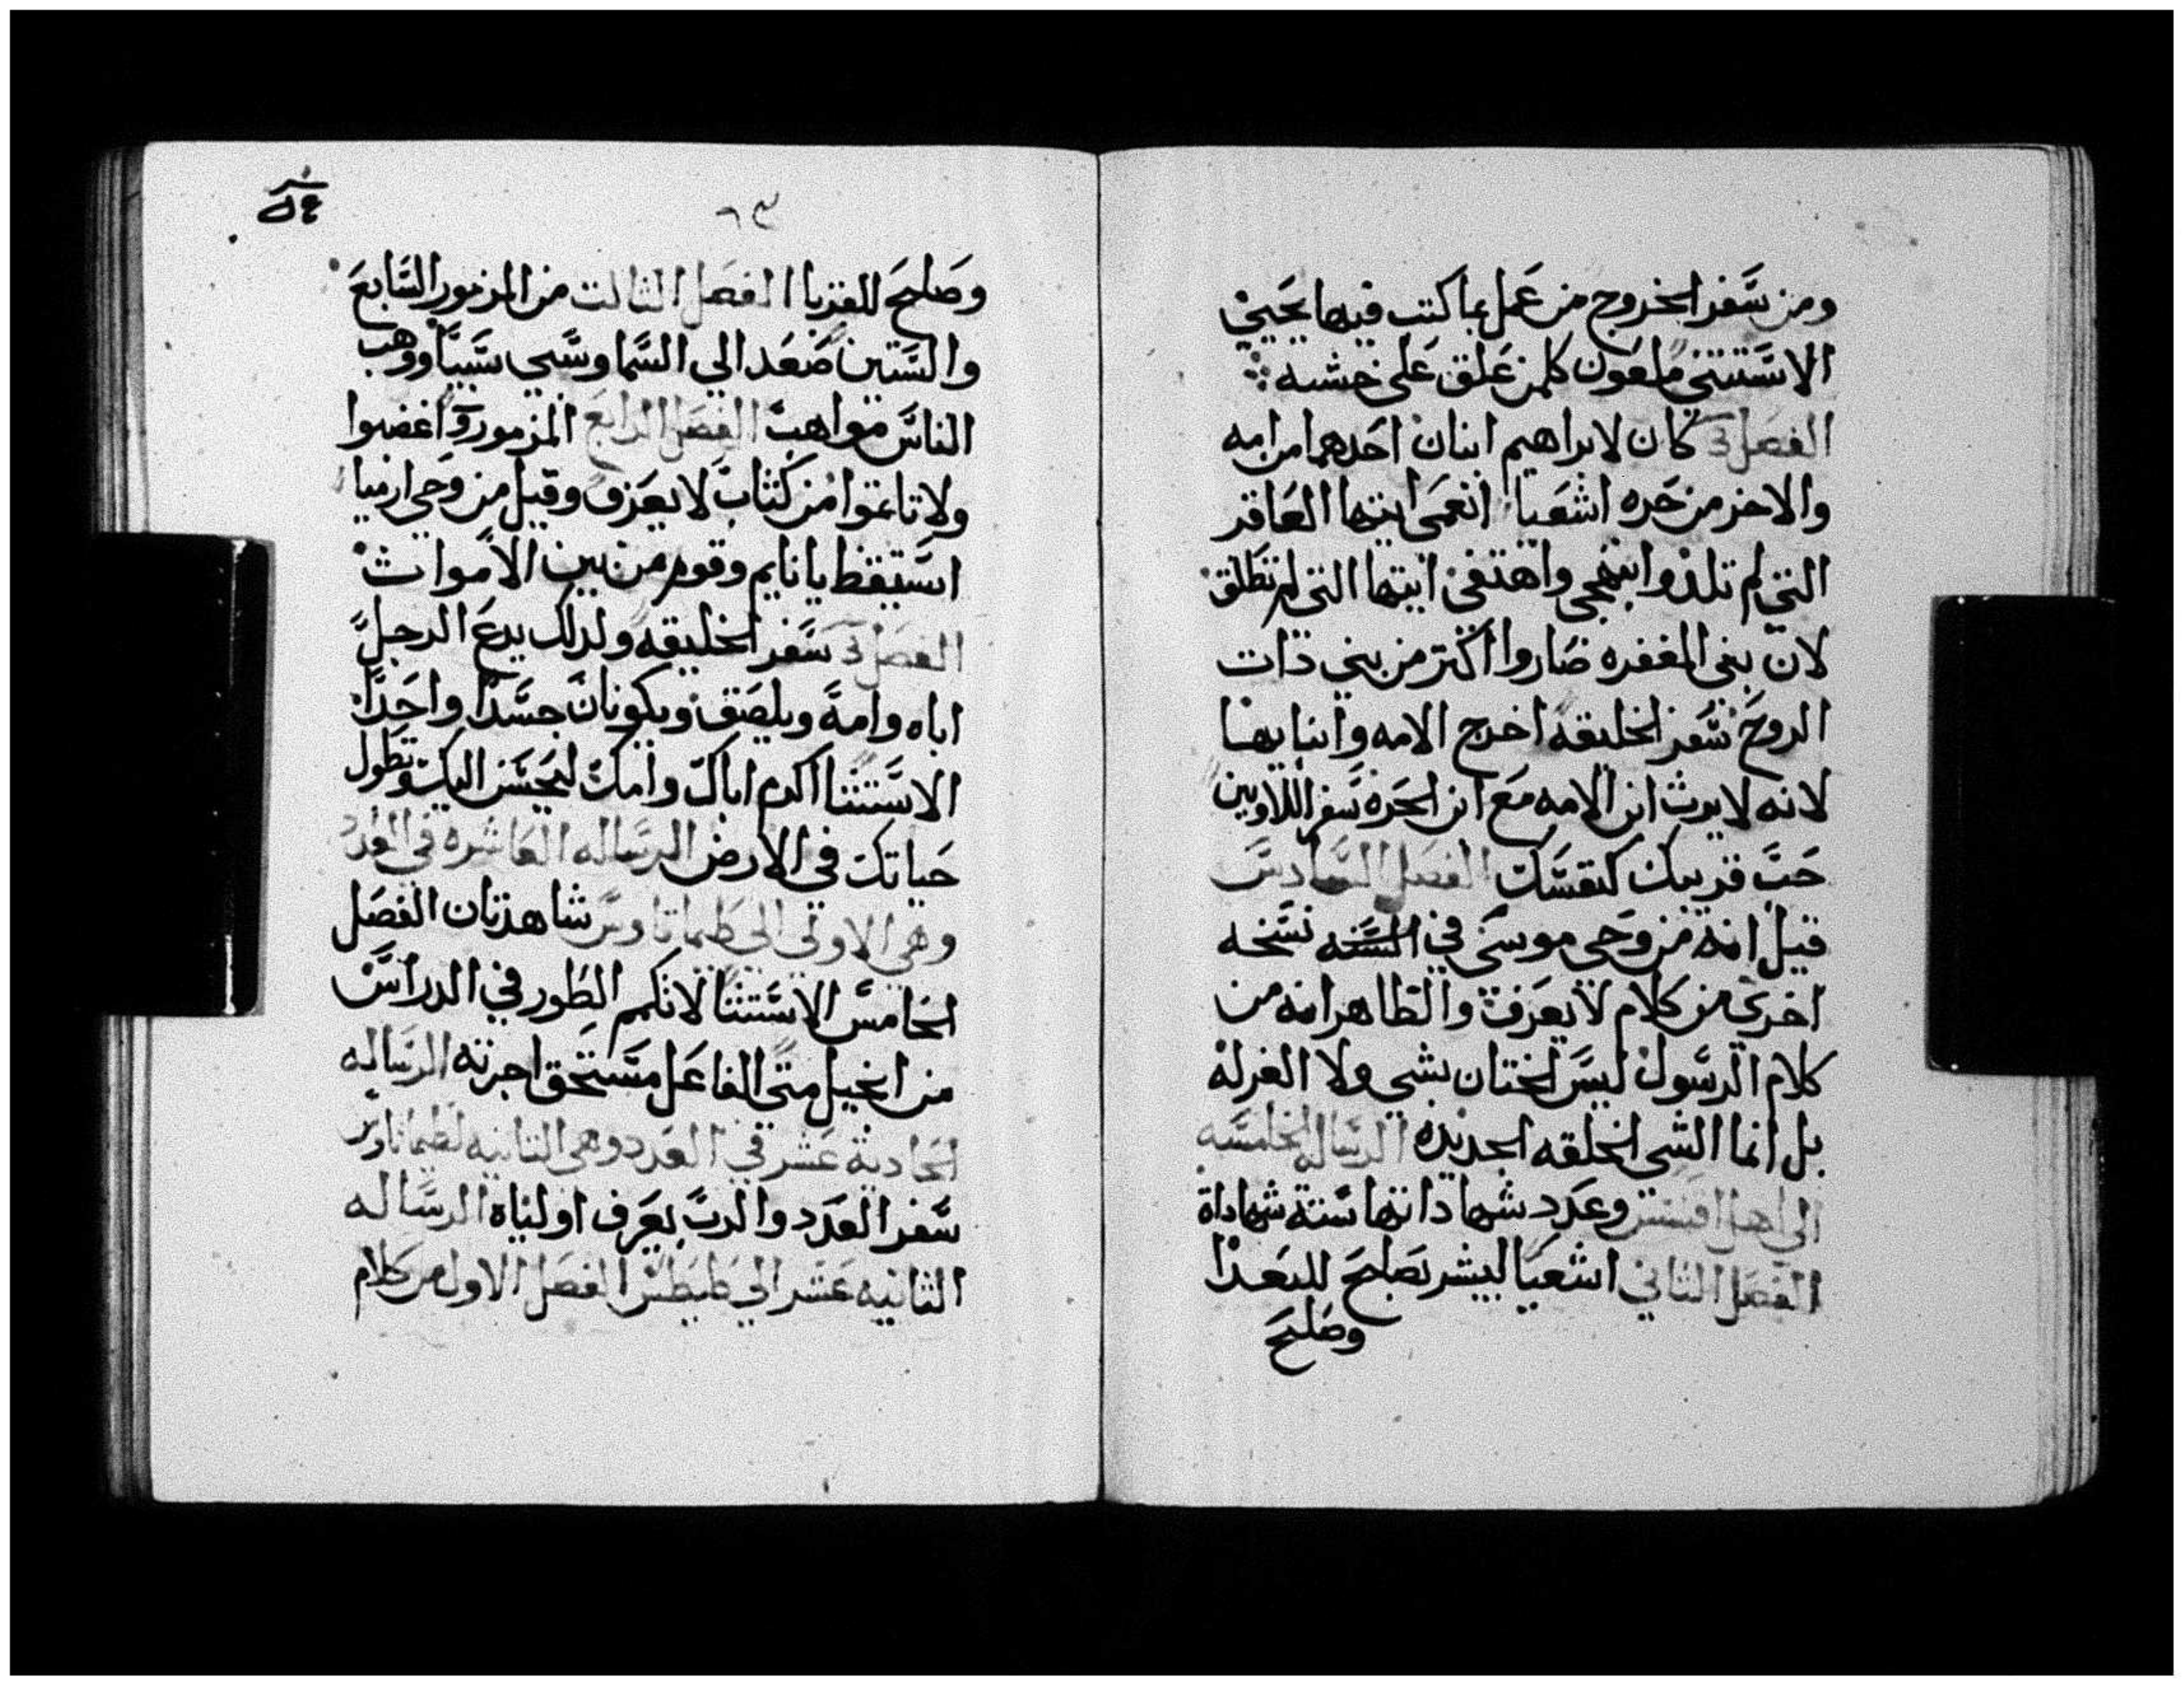 ومن سفر الخروج من عمل بما كتب فيها يحيي
الاستتنى ملعون كلمن علق على خشبه
الفصل كان لابراهيم ابنان احدهما من امه
والاخر من حره اشعيا انعمى ايتها العاقر
التي لم تلد وابتهجي واهتفي ايتها التي لم تطلق
لان بني المغفره صاروا اكتر من بني دات
الروح سفر الخليقه اخرج الامه وابنايها
لانه لا يورث ابن الامه مع ابن الحره سفر اللاويين
حب قريبك كنفسك الفصل السادس
قيل انه من وحي موسى في السنه نسخه
اخري من كلام لا يعرف والظاهر انه من
كلام الرسول ليس الختان بشي ولا الغرله
بل انما الشي الخلقه الجديده الرساله الخامسه
الي اهل افسس وعدد شهاداتها ستة شهاداة
الفصل الثاني اشعيا ليبشر بصلح للبعدا
وصلح
٦٣
وصلح للقربا الفصل الثالت من المزمور السابع
والستين صعد الي السما وسبي سبيا ووهب
الناس مواهب الفصل الرابع المزمور اغضبوا
ولا تاتموا من كتاب لا يعرف وقيل من وحي ارميا
استيقظ يا نايم وقوم من بين الاموات
الفصل سفر الخليقه ولدلك يدع الرجل
اباه وامه ويلصق ويكونان جسدا واحدا
الاستتنا اكرم اباك وامك ليحسن اليك وتطول
حياتك في الارض الرساله العاشره في العدد
وهي الاولى الى طيماتاوس شاهدتان الفصل
الخامس الاستتنا لا تكم الطور في الدراس
من انجيل متى الفاعل مستحق اجرته الرساله
الحادية عشر في العدد وهي التانيه لطيماتاوس
سفر العدد والرب يعرف اولياه الرساله
الثانيه عشر الي طيطس الفصل الاول من كلام